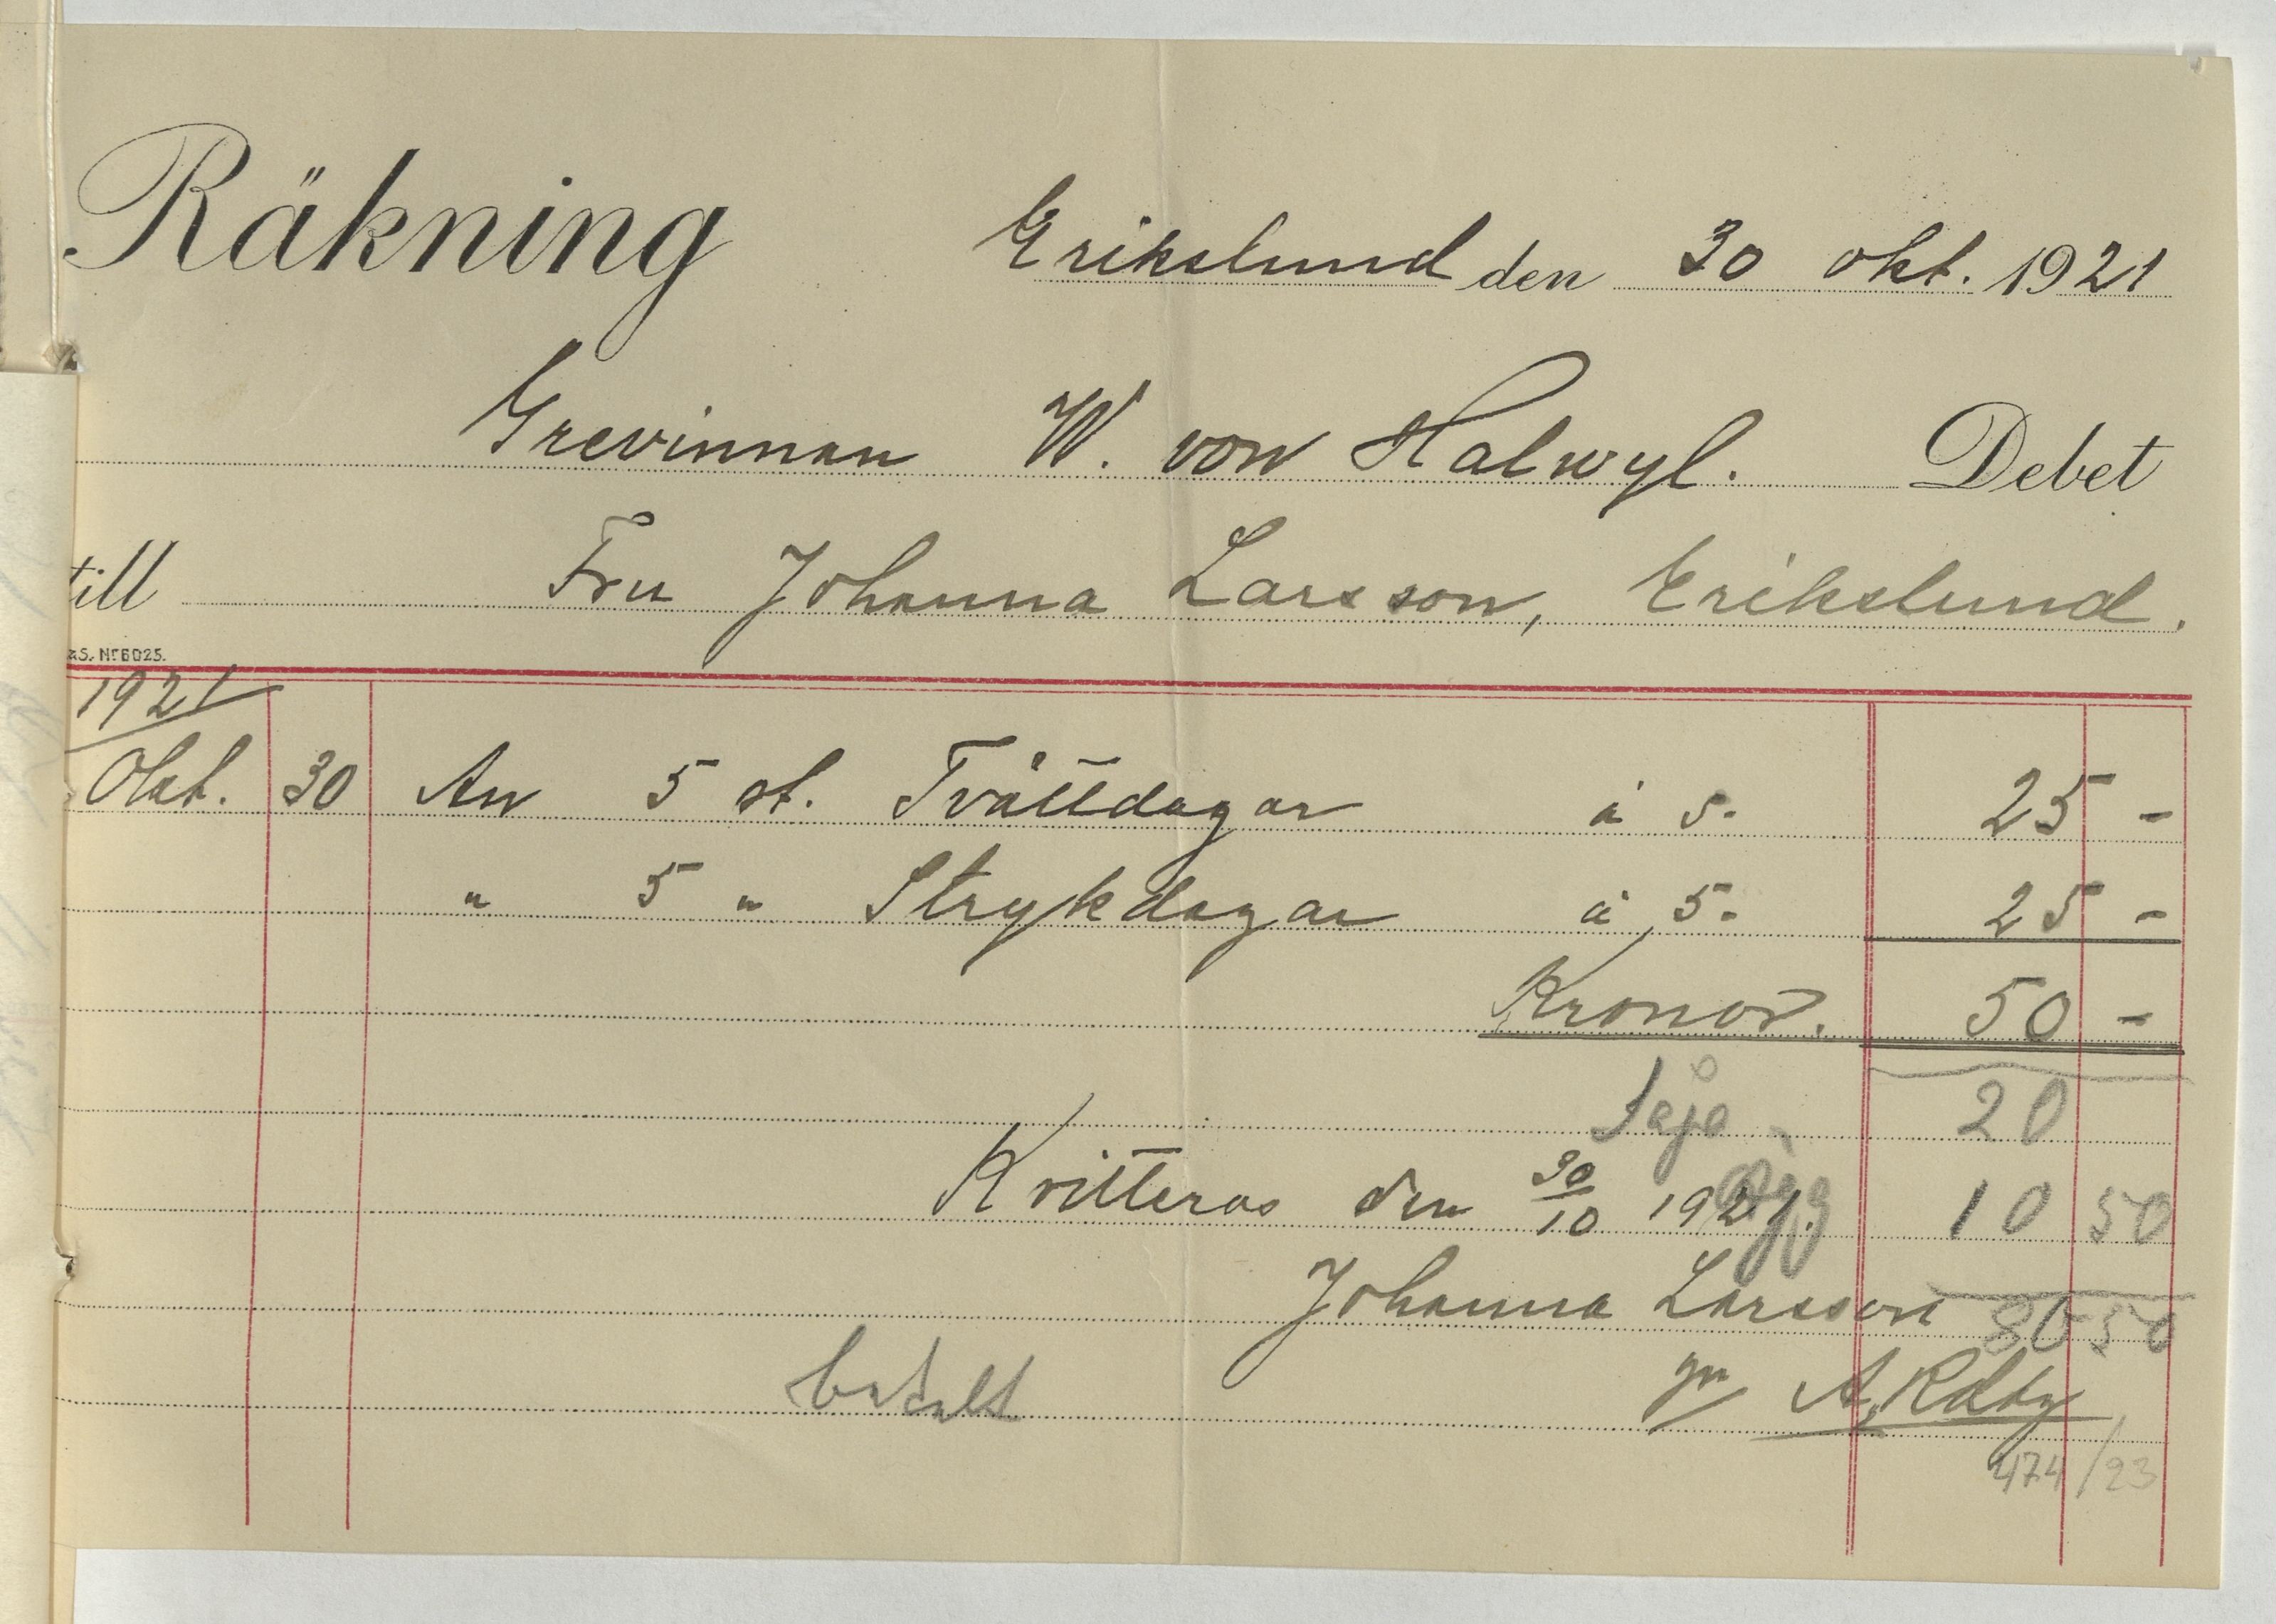 Räkning Erikslund den 30 okt. 1921
Grevinnan W. von Halwyl. Debet
till Fru Johanna Larsson, Erikslund.
&S. Nr 6025.
1921
Okt. 30 An 5 st. Tvättdagar à 5- 25 -
" 5 " Strykdagar à 5- 25 -
Kronor. 50 -
20
Kvitteras den 30/10 1921. ägg 10 50
Johanna Larsson 80 50
betalt
474/23